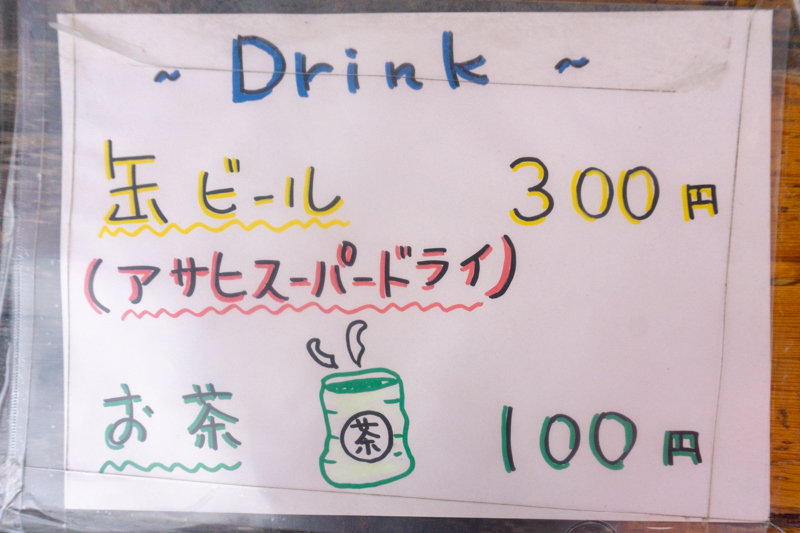 ~ Drink ~
缶ビール 300円
(アサヒスーパードライ)
お茶 茶 100円